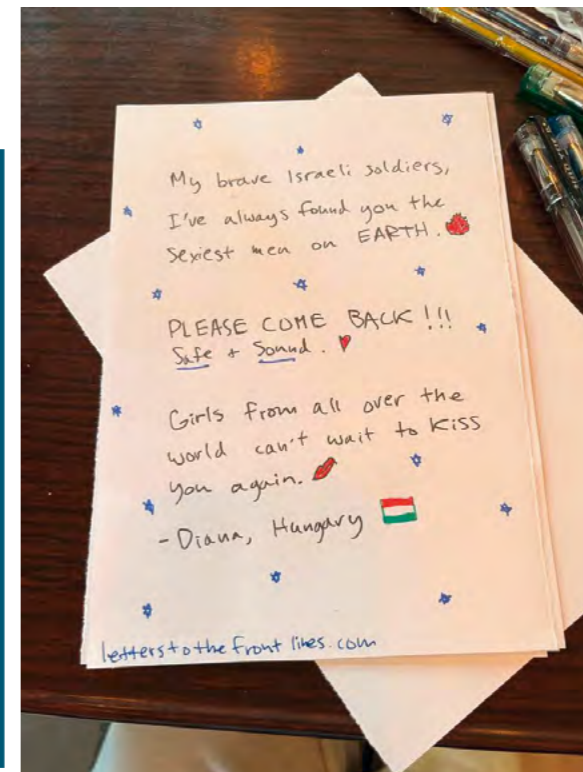 My brave Israeli soldiers,
I've always found you the
sexiest men on EARTH.
PLEASE COME BACK !!!
Safe + Sound.
Girls from all over the
world can't wait to kiss
you again.
- Diana, Hungary
letterstothefrontlines.com